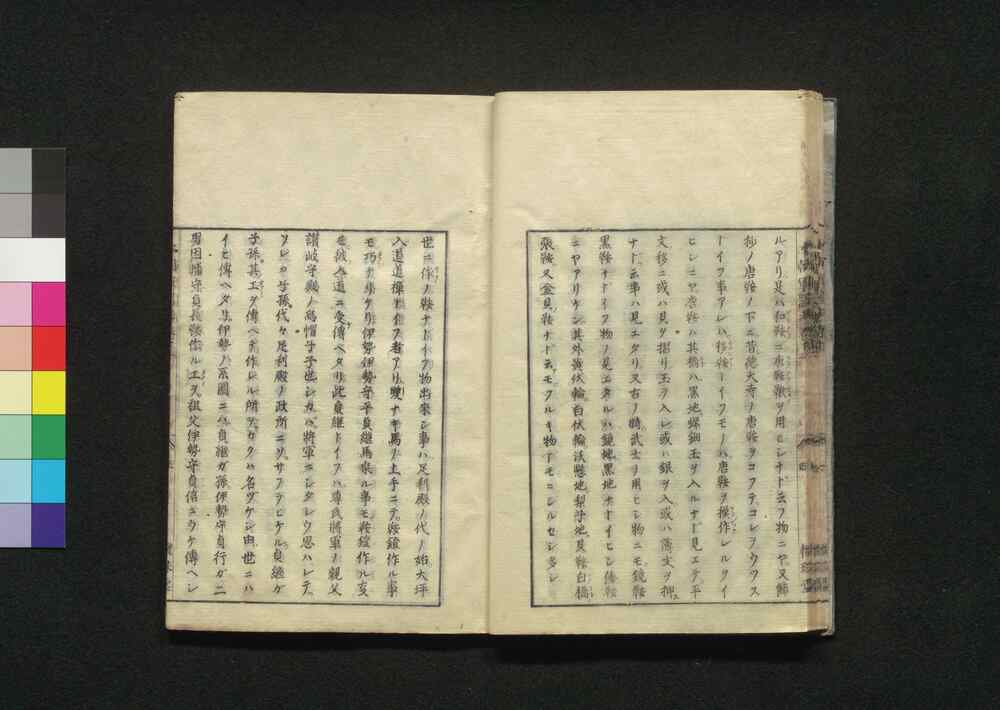 ルアリ是ハ和鞍ニ乗鞍敷ヲ用ヒシナド云フ物ニヤ又餝
抄ノ唐鞍ノ下ニ昔徳大寺ノ唐鞍ヲコフテコレヲウツス
トイフ事アレハ移鞍トイフモノハ唐鞍ヲ操作レルヲイ
ヒシニヤ唐鞍ハ其橋ハ黒地螺鈿玉ヲ入ルナド見エテ平
文移ニ或ハ貝ヲ摺リ玉ヲ入レ或ハ銀ヲ入或ハ薄文ヲ押
ナド云事ハ見エタリ又古ノ時武士ノ用ヒシ物ニモ鏡鞍
黒鞍ナドイフ物ノ見エタルハ鏡地黒地ナドイヒシ倭鞍
ニヤアリケン其外黄伏輪白伏輪沃懸地梨子地貝鞍白橋
張鞍又金貝鞍ナド云モフルキ物ドモニシルセシ多シ
世ニ作ノ鞍ナドイフ物出来シ事ハ足利殿ノ代ノ始大坪
入道道禅ト云フ者アリ雙ナキ馬ノ上手ニテ鞍鐙作ル事
モ巧ナリケリ伊勢伊勢守平貞継馬乗ル事モ鞍鐙作ル亥
モ彼入道ニ受傳ヘタリ此貞継トイフハ尊氏将軍ノ親父
讃岐守殿ノ烏帽子子也シカバ将軍ニシタシウ思ハレテ
ソレヨリ子孫代々足利殿ノ政所ニツサフラヒケル貞継ガ
子孫其工ヲ傳ヘテ作レル所ヲカクハ名ヅケシ由世ニハ
イヒ傳ヘタリ伊勢ノ系圖ニハ貞継ガ孫伊勢守貞行ガ二
男因幡守貞長鞍作ルエヲ祖父伊勢守貞信ニウケ傳ヘシ